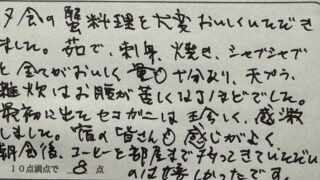 夕食の蟹料理を大変おいしくいただき
ました。茹で、刺身、焼き、シャブシャブ
と全てがおいしく量も十分あり、天プラ、
雑炊はお腹が苦しくなるほどでした。
最初に出たセコガニは珍しく、感激
しました。宿の皆さんも感じがよく、
朝食後、コーヒーを部屋まで持ってきていただい
10点満点で 8 点
のは嬉しかったです。